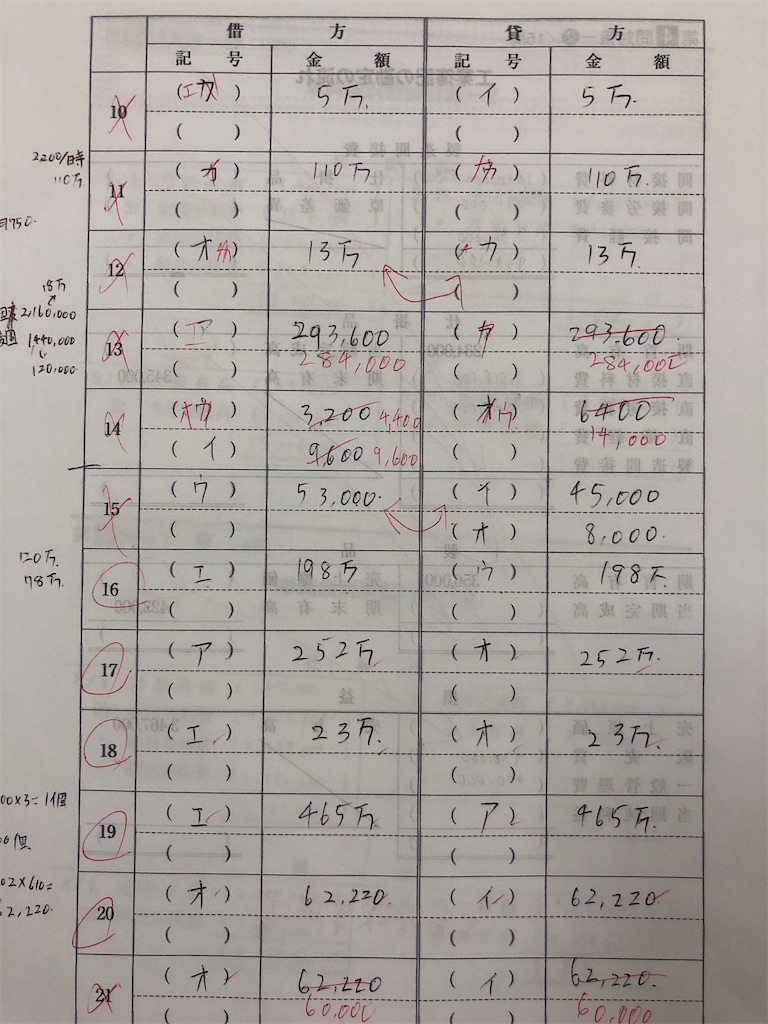 借 方 貸 方
記 号 金 額 記 号 金 額
10 (エ ) 5万. (イ) 5万.
( ) ( )
2200/時
110万
11 ( ) 110万 ( ウ) 110万
( ) ( )
12 (オ ) 13万 ( ウ) 13万
( ) ( )
18万
2,160,000
1,440,000
120,000
13 (ア) 293,600 ( ) 293,600
( ) 284,000 ( ) 284,000
14 ( ) 3,200 4,400 ( ) 6400
(イ) 9,600 9,600 ( ) 14,000
15 (ウ) 53,000. (イ) 45,000
( ) (オ) 8,000.
120万.
78万.
16 (エ) 198万 (ウ) 198万
( ) ( )
17 (ア) 252万 (オ) 252万
( ) ( )
18 (エ) 23万. (オ) 23万.
( ) ( )
00×3=1個
19 (エ) 465万. (ア) 465万.
( ) ( )
02×610=
62,220.
20 (オ) 62,220. (イ) 62,220
( ) ( )
21 (オ) 62,220 (イ) 62,220.
( 60,000 ( 60,000